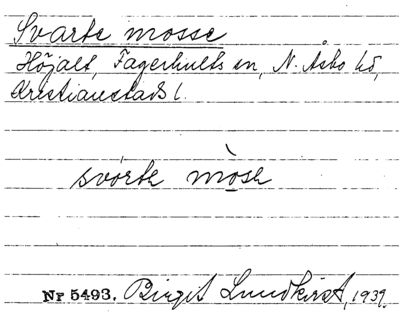 Svarte mosse
Höjalt, Fagerhults sn, N. Åsbo hd,
Kristianstads l.
svórtə mòsə
Nr 5493. Birgit Lundkvist, 1939.